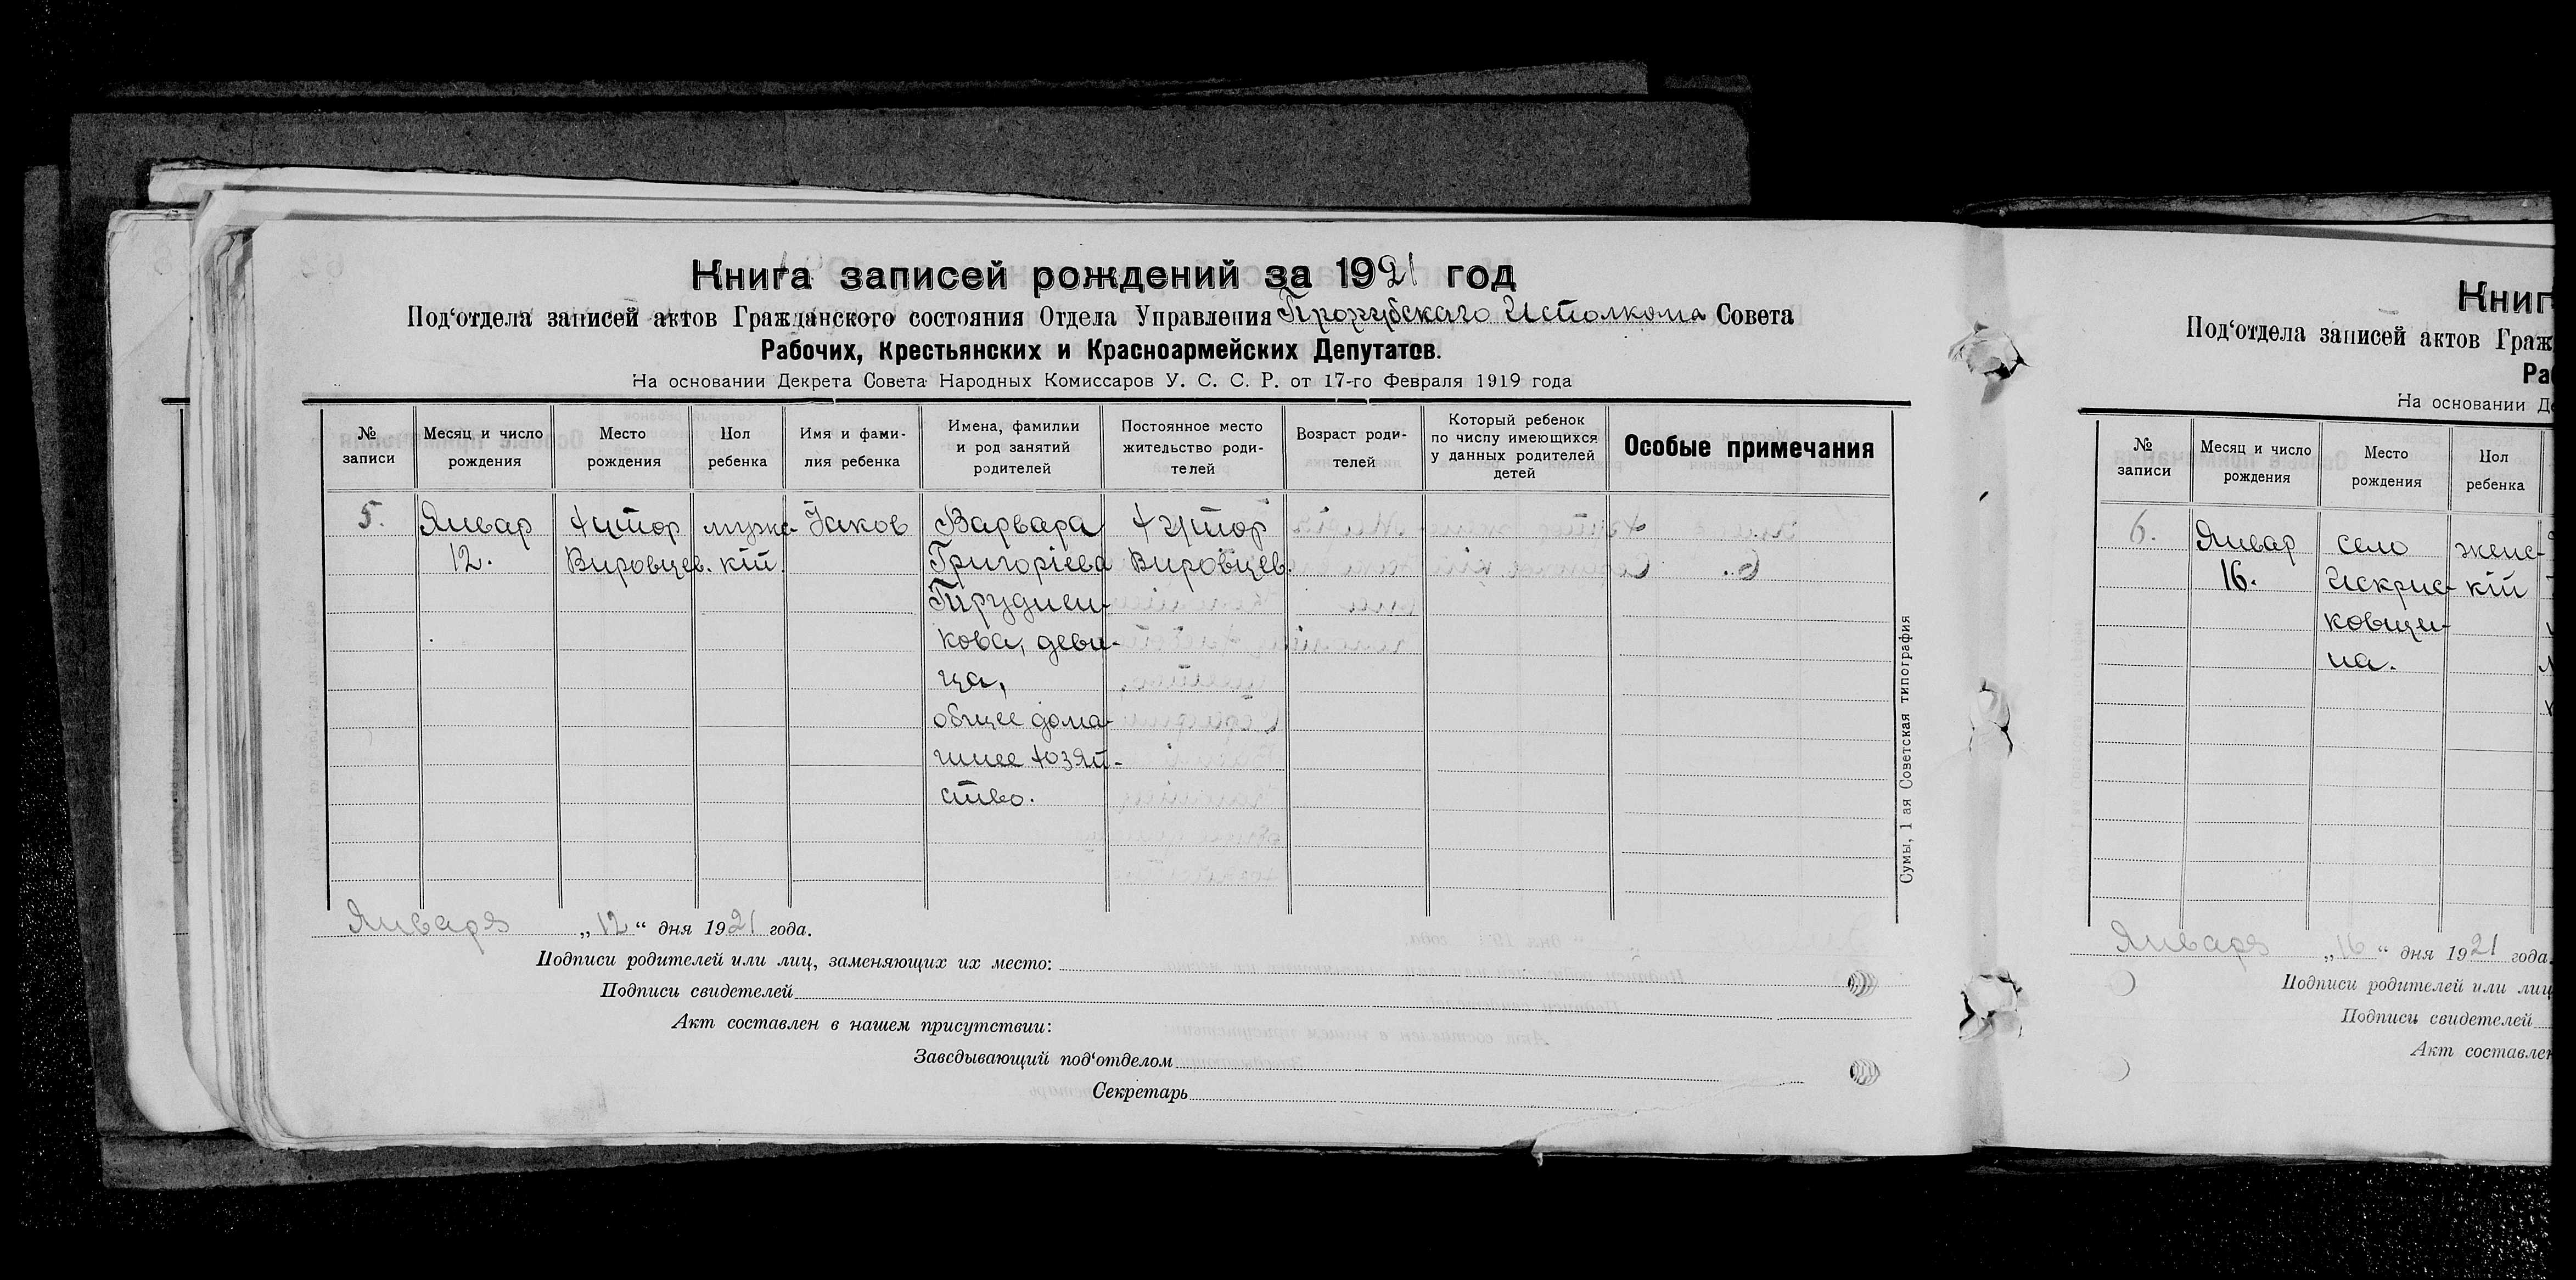 Книга записей рождений за 1921 год
Под‘отдела записей актов Гражданского состояния Отдела Управления Прорубскаго Исполкома Совета
Рабочих, Крестьянских и Красноармейских Депутатов.
На основании Декрета Совета Народных Комиссаров У. С. С. Р. от 17-го Февраля 1919 года
№ записи
Месяц и число рождения
Место рождения
Пол ребенка
Имя и фами-
лия ребенка
Имена, фамилии
и род занятий
родителей
Постоянное место
жительство роди-
телей
Возраст роди-
телей
Который ребенок
по числу имеющихся
у данных родителей
детей
Особые примечания
5.
Январ
12.
Хутор
Вировцев.
мужс-
кій.
Іаков
Варвара
Григоріева
Труднен-
кова, деви-
ца,
общее дома-
шнее хозяй-
ство.
Хутор
Вировцев.
Сумы, 1 ая Советская типография
Января „12“ дня 1921 года.
Подписи родителей или лиц, заменяющих их место:
Подписи свидетелей
Акт составлен в нашем присутствии:
Заведывающий под‘отделом
Секретарь
Книг
Под‘отдела записей актов Граж
Ра
На основании Де
№ записи
Месяц и число
рождения
Место
рождения
Пол
ребенка
6.
Январ
16.
село
Искрис-
ковщи-
на.
женс-
кій
Января „16“ дня 1921 года.
Подписи родителей или лиц
Подписи свидетелей
Акт составлен